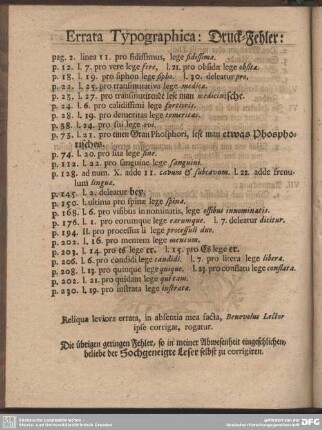 Errata Typographica: Druck-Fehler:
pag. 2. linea 11. pro fidissimus, lege fidissima.
p. 12. l. 7. pro vere lege fere, l. 21. pro obsidæ lege obsita.
p. 18. l. 19. pro siphon lege sipho. l. 30. deleatur pro.
p. 22. l. 25. pro transmutativa lege medica.
p. 23. l. 27. pro transmutirende lese man medicinische.
p. 24. l. 6. pro calidissimi lege fortioris.
p. 28. l. 19. pro demeritas lege temeritas.
p. 38. l. 24. pro sui lege
p. 73. l. 21. pro einen Gran Phosphori, lese man etwas Phospho-
rischen.
p. 74. l. 20. pro sua lege sine.
p. 112. l. 22. pro sanguine lege sanguini.
p. 128. ad num. X. adde 11. cavum & subcavum. l. 22. adde frenu-
lum linguæ.
p. 145. l. 2. deleatur bey.
p. 150. l. ultima pro spinæ lege spina.
p. 168. l. 6. pro visibus innominatis, lege ossibus innominatis.
p. 176. l. 1. pro eorumque lege earumque. l. 7. deleatur dicitur.
p. 194. II. pro processus li lege processuli duo.
p. 202. l. 16. pro mentem lege mentum.
p. 203. l. 14. pro ts lege er. l. 15. pro Es lege er.
p. 206. l. 6. pro candidi lege candidi. l. 7. pro litera lege libera.
p. 208. l. 13. pro quinque lege quique. l. 23. pro conflatu lege conflata.
p. 202. l. 21. pro quidam lege quidam.
p. 230. l. 19. pro instrata lege instrata.
Reliqua leviora errata, in absentia mea facta, Benevolus Lector
ipse corrigat, rogatur.
Die übrigen geringen Fehler, so in meiner Abwesenheit eingeschlichen,
beliebe der Hochgeneigte Leser selbst zu corrigiren.